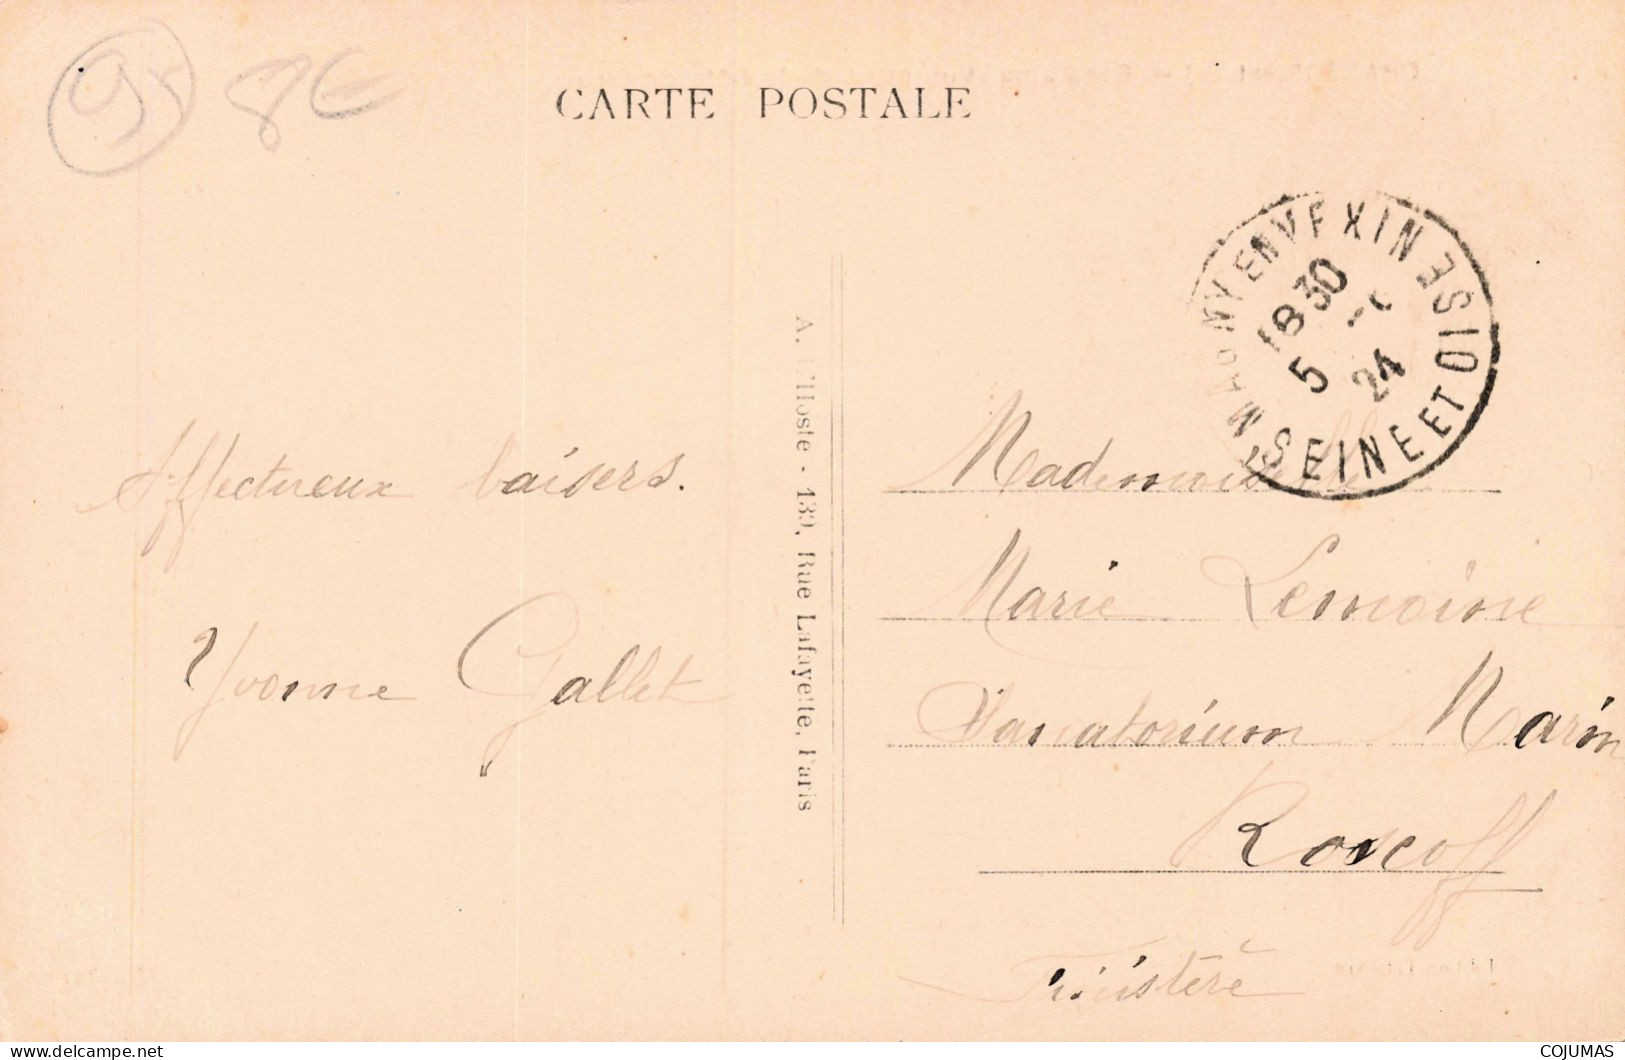 95 8€
CARTE POSTALE
MY EN VEXIN
SEINE ET OISE
18 30
5
24
Affectueux baisers.
Yvonne Gallet
A. L'Hoste - 139, Rue Lafayette, Paris
Mademoiselle
Marie Lemoine
Sanatorium Marin
Roscoff
Finistère
COJUMAS